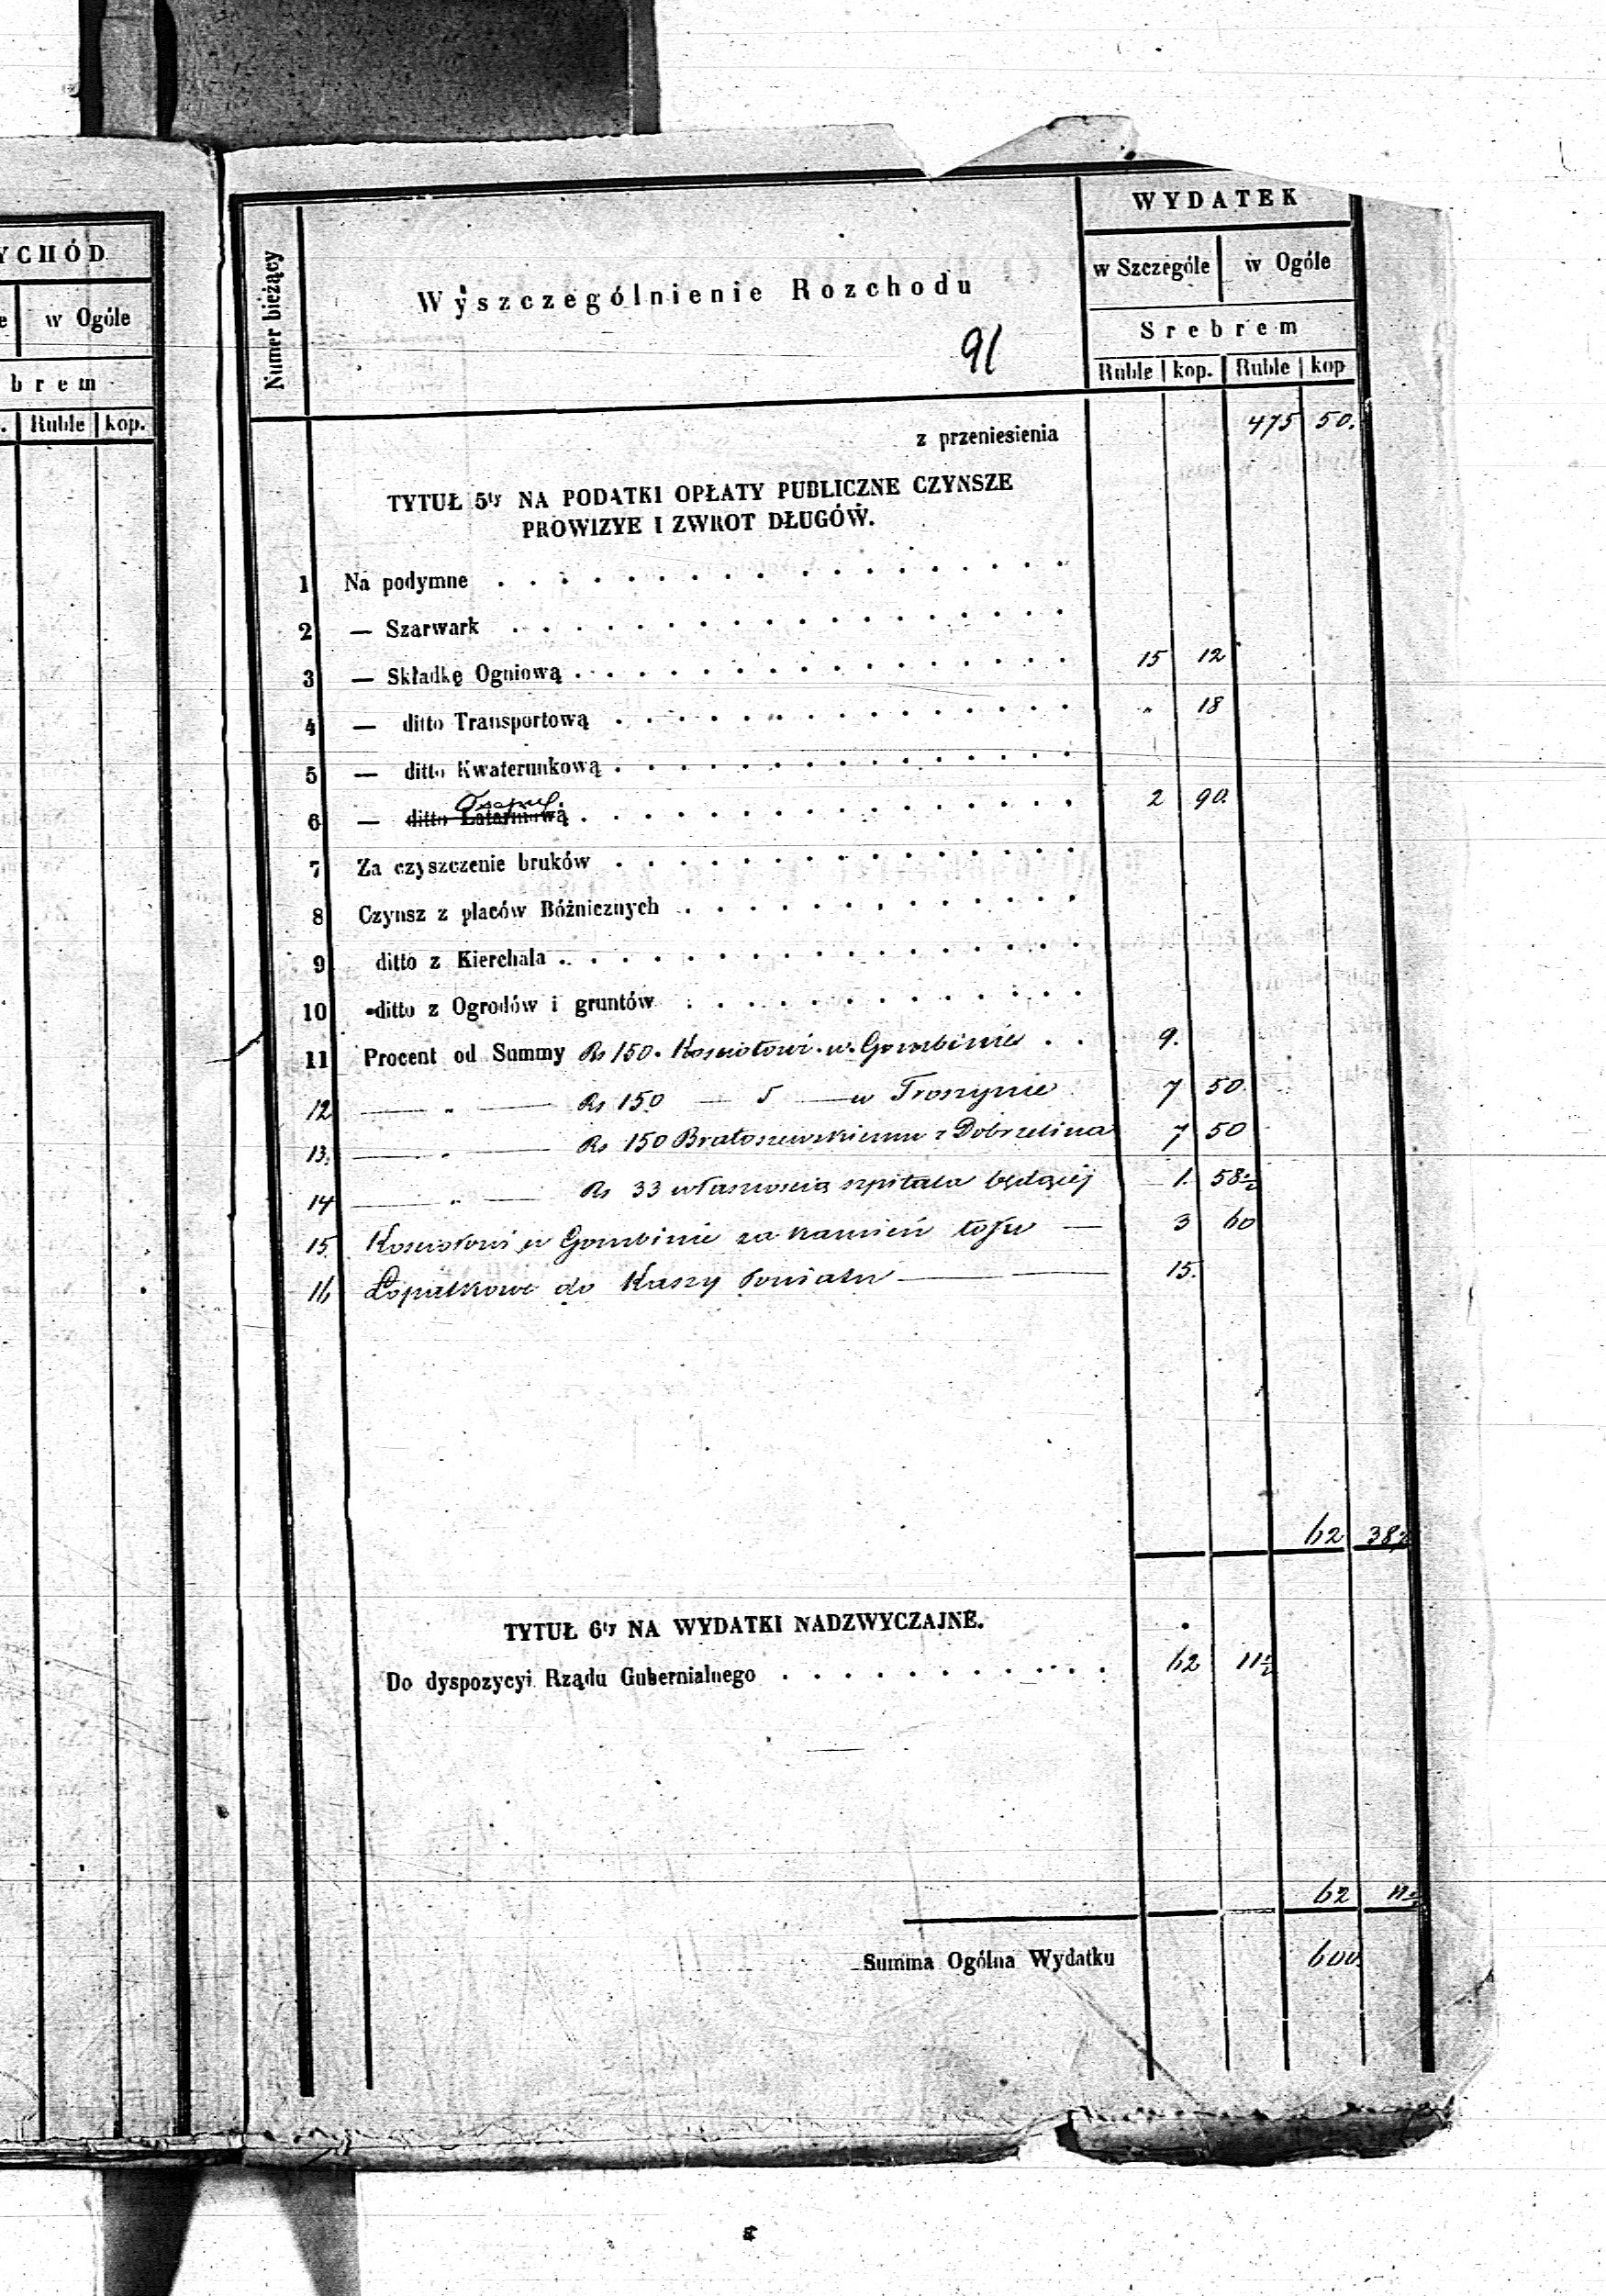 YCHÓD
w Ogóle
brem
Ruble kop.
Numer bieżący
Wyszczególnienie Rozchodu
91
WYDATEK
w Szczególe w Ogóle
Srebrem
Ruble kop. Ruble kop
z przeniesienia 475 50.
TYTUŁ 5ty NA PODATKI OPŁATY PUBLICZNE CZYNSZE
PROWIZYE I ZWROT DŁUGÓW.
1 Na podymne
2 — Szarwark
3 — Składkę Ogniową 15 12
4 — ditto Transportową " 18
5 — ditto Kwaterunkową
6 — ditto Latarniową 2 90.
7 Za czyszczenie bruków
8 Czynsz z placów Bóżnicznych
9 ditto z Kierchala
10 ditto z Ogrodów i gruntów
11 Procent od Summy Rs 150. Kosciołowi w Gombinie 9.
12 — " — Rs 150 — — w Troszynie 7 50.
13. — " — Rs 150 Bratoszewskiemu z Dobrzelina 7 50
14 — " — Rs 33 własnoscią szpitala będącéj 1. 58½
15. Kosciołowi w Gombinie za kamień łoju — 3 60
16 Łopatkowe do Kassy Powiatu — 15.
62 38½
TYTUŁ 6ty NA WYDATKI NADZWYCZAJNE.
Do dyspozycyi Rządu Gubernialnego 62 11½
62 11½
Summa Ogólna Wydatku 600.